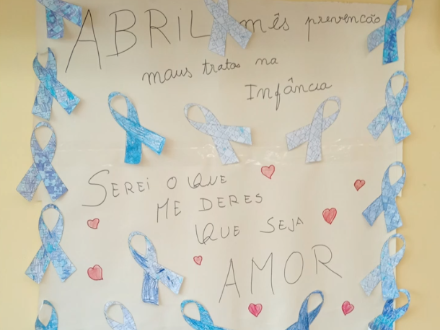 ABRIL mês prevenção
maus tratos na
Infância
SEREI O QUE
ME DERES
QUE SEJA
AMOR